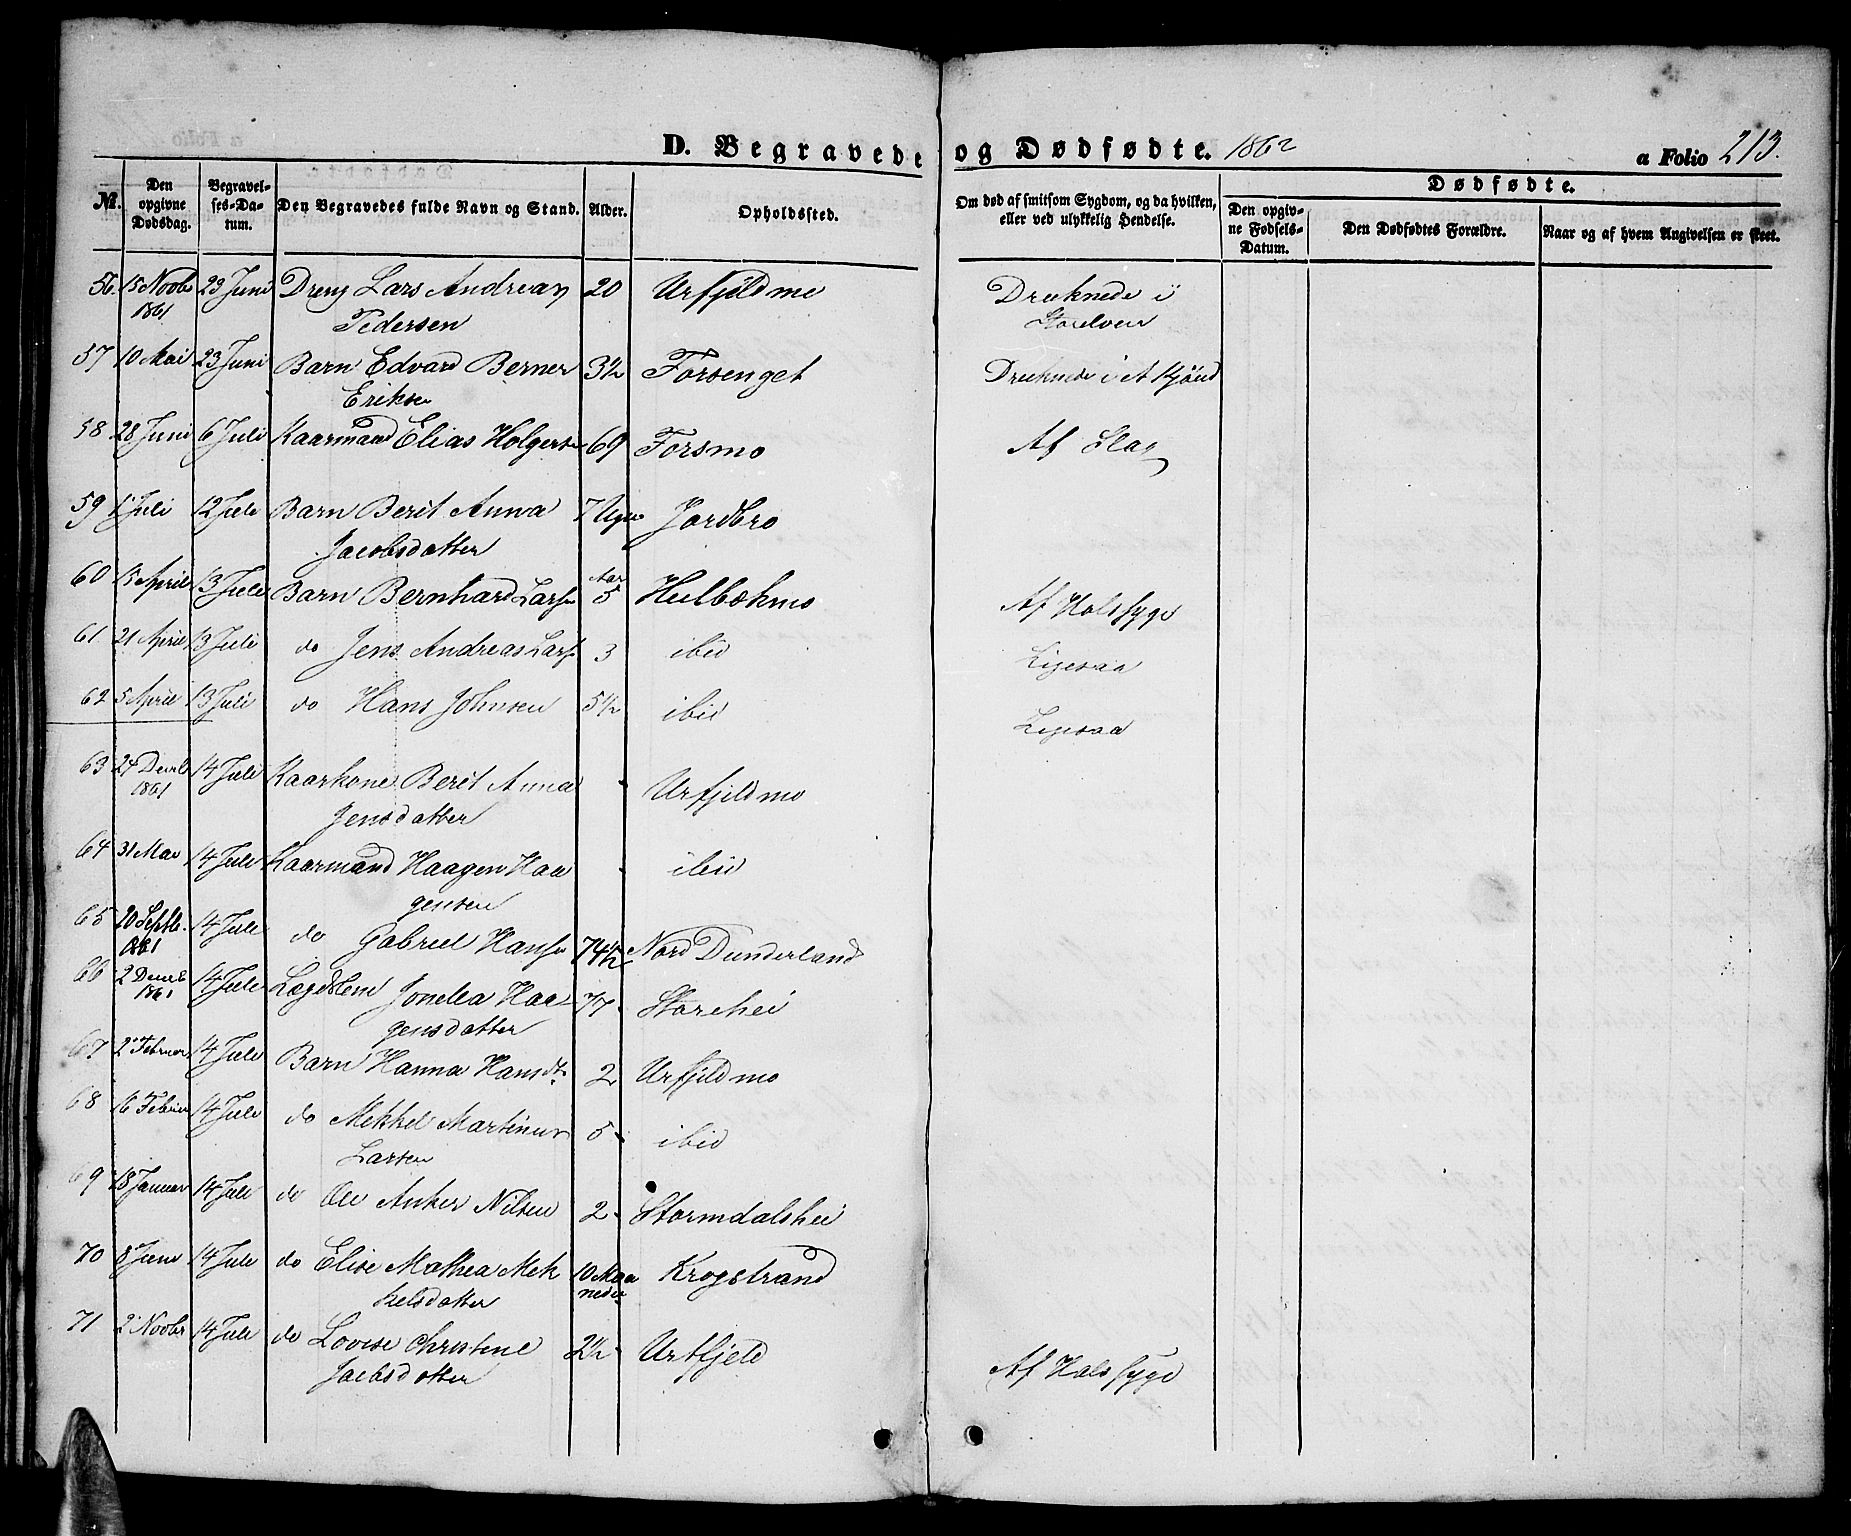 D. Begravede og Dødfødte. 1862 a Folio 213.
№. Den opgivne Dødsdag. Begravelses-Datum. Den Begravedes fulde Navn og Stand. Alder. Opholdssted. Om død af smitsom Sygdom, og da hvilken, eller ved ulykkelig Hendelse. Dødfødte.
Den opgivne Fødsels-Datum. Den Dødfødtes Forældre. Naar og af hvem Angivelsen er skeet.
56. 15 Novbr 23 Juni Dreng Lars Andreas 20 Urfjeldmo Druknede i
1861 Pedersen Storelven
57 10 Mai 23 Juni Barn Edvard Berner 3½ Forsenget Druknede i et Kjönd
Eriksen
58 28 Juni 6 Juli Kaarmand Elias Holgersen 69 Forsmo Af Slag
59 1 Juli 12 Juli Barn Berit Anna 7 Uger Jordbro
Jacobsdatter
60 15 April 13 Juli Barn Bernhard Larsen Aar 5 Heilbækmo Af Halssyge
61 21 April 13 Juli do Jens Andreas Lars 3 ibid Ligesaa
62 5 April 13 Juli do Hans Johnsen 5½ ibid Ligesaa
63 27 Decbr 14 Juli Kaarkone Berit Anna - Urfjeldmo
1861 Jensdatter
64 31 Mai 14 Juli Kaarmand Haagen Haa - ibid
gensen
65 20 Septbr. 14 Juli do Gabriel Hansen 74½ Nord Dunderland
1861
66 2 Decbr 14 Juli Lægdslem Jonelia Haa- 77 - Storehei
1861 gensdatter
67 2 Februar 14 Juli Barn Hanna Hansdtr 2 Urfjeldmo
68 16 Februar 14 Juli do Mekkel Martinus 5 - ibid
Larsen
69 18 Januar 14 Juli do Ole Anker Nilsen 2 - Stormdalshei
70 8 Juni 14 Juli do Elise Mathea Mek 10 Maa Krogstrand
kelsdatter neder
71 2 Novbr 14 Juli do Lovise Christene 2½ - Urtfjeld Af Halssyge
Jacobsdatter